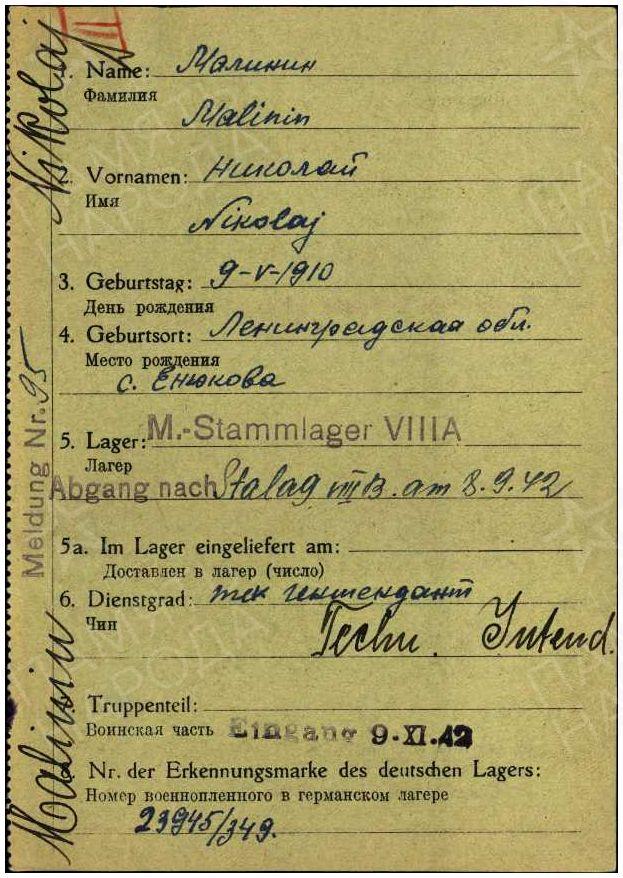 Nikolaj
II
. Name: Малинин
Фамилия
Malinin
2. Vornamen: Николай
Имя
Nikolaj
3. Geburtstag: 9-V-1910
День рождения
4. Geburtsort: Ленинградская обл.
Место рождения
с. Енюкова
5. Lager: M.-Stammlager VIIIA
Лагер
Abgang nach Stalag VIII B. am 8.9.42
Meldung Nr. 95
5a. Im Lager eingeliefert am:
Доставлен в лагер (число)
6. Dienstgrad: тек
Чин
Techn. Intend.
Truppenteil:
Воинская часть Eingang 9.XI.42
Nr. der Erkennungsmarke des deutschen Lagers:
Номер военнопленного в германском лагере
23945/349.
Malinin